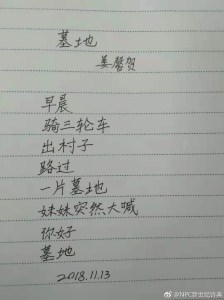 墓地
姜馨贺
早晨
骑三轮车
出村子
路过
一片墓地
妹妹突然大喊
你好
墓地
2018.11.13